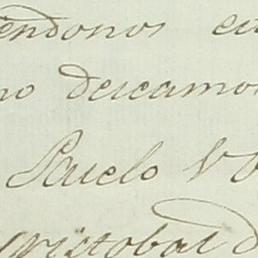 endonos
no descamos
Suelo
cristobal d